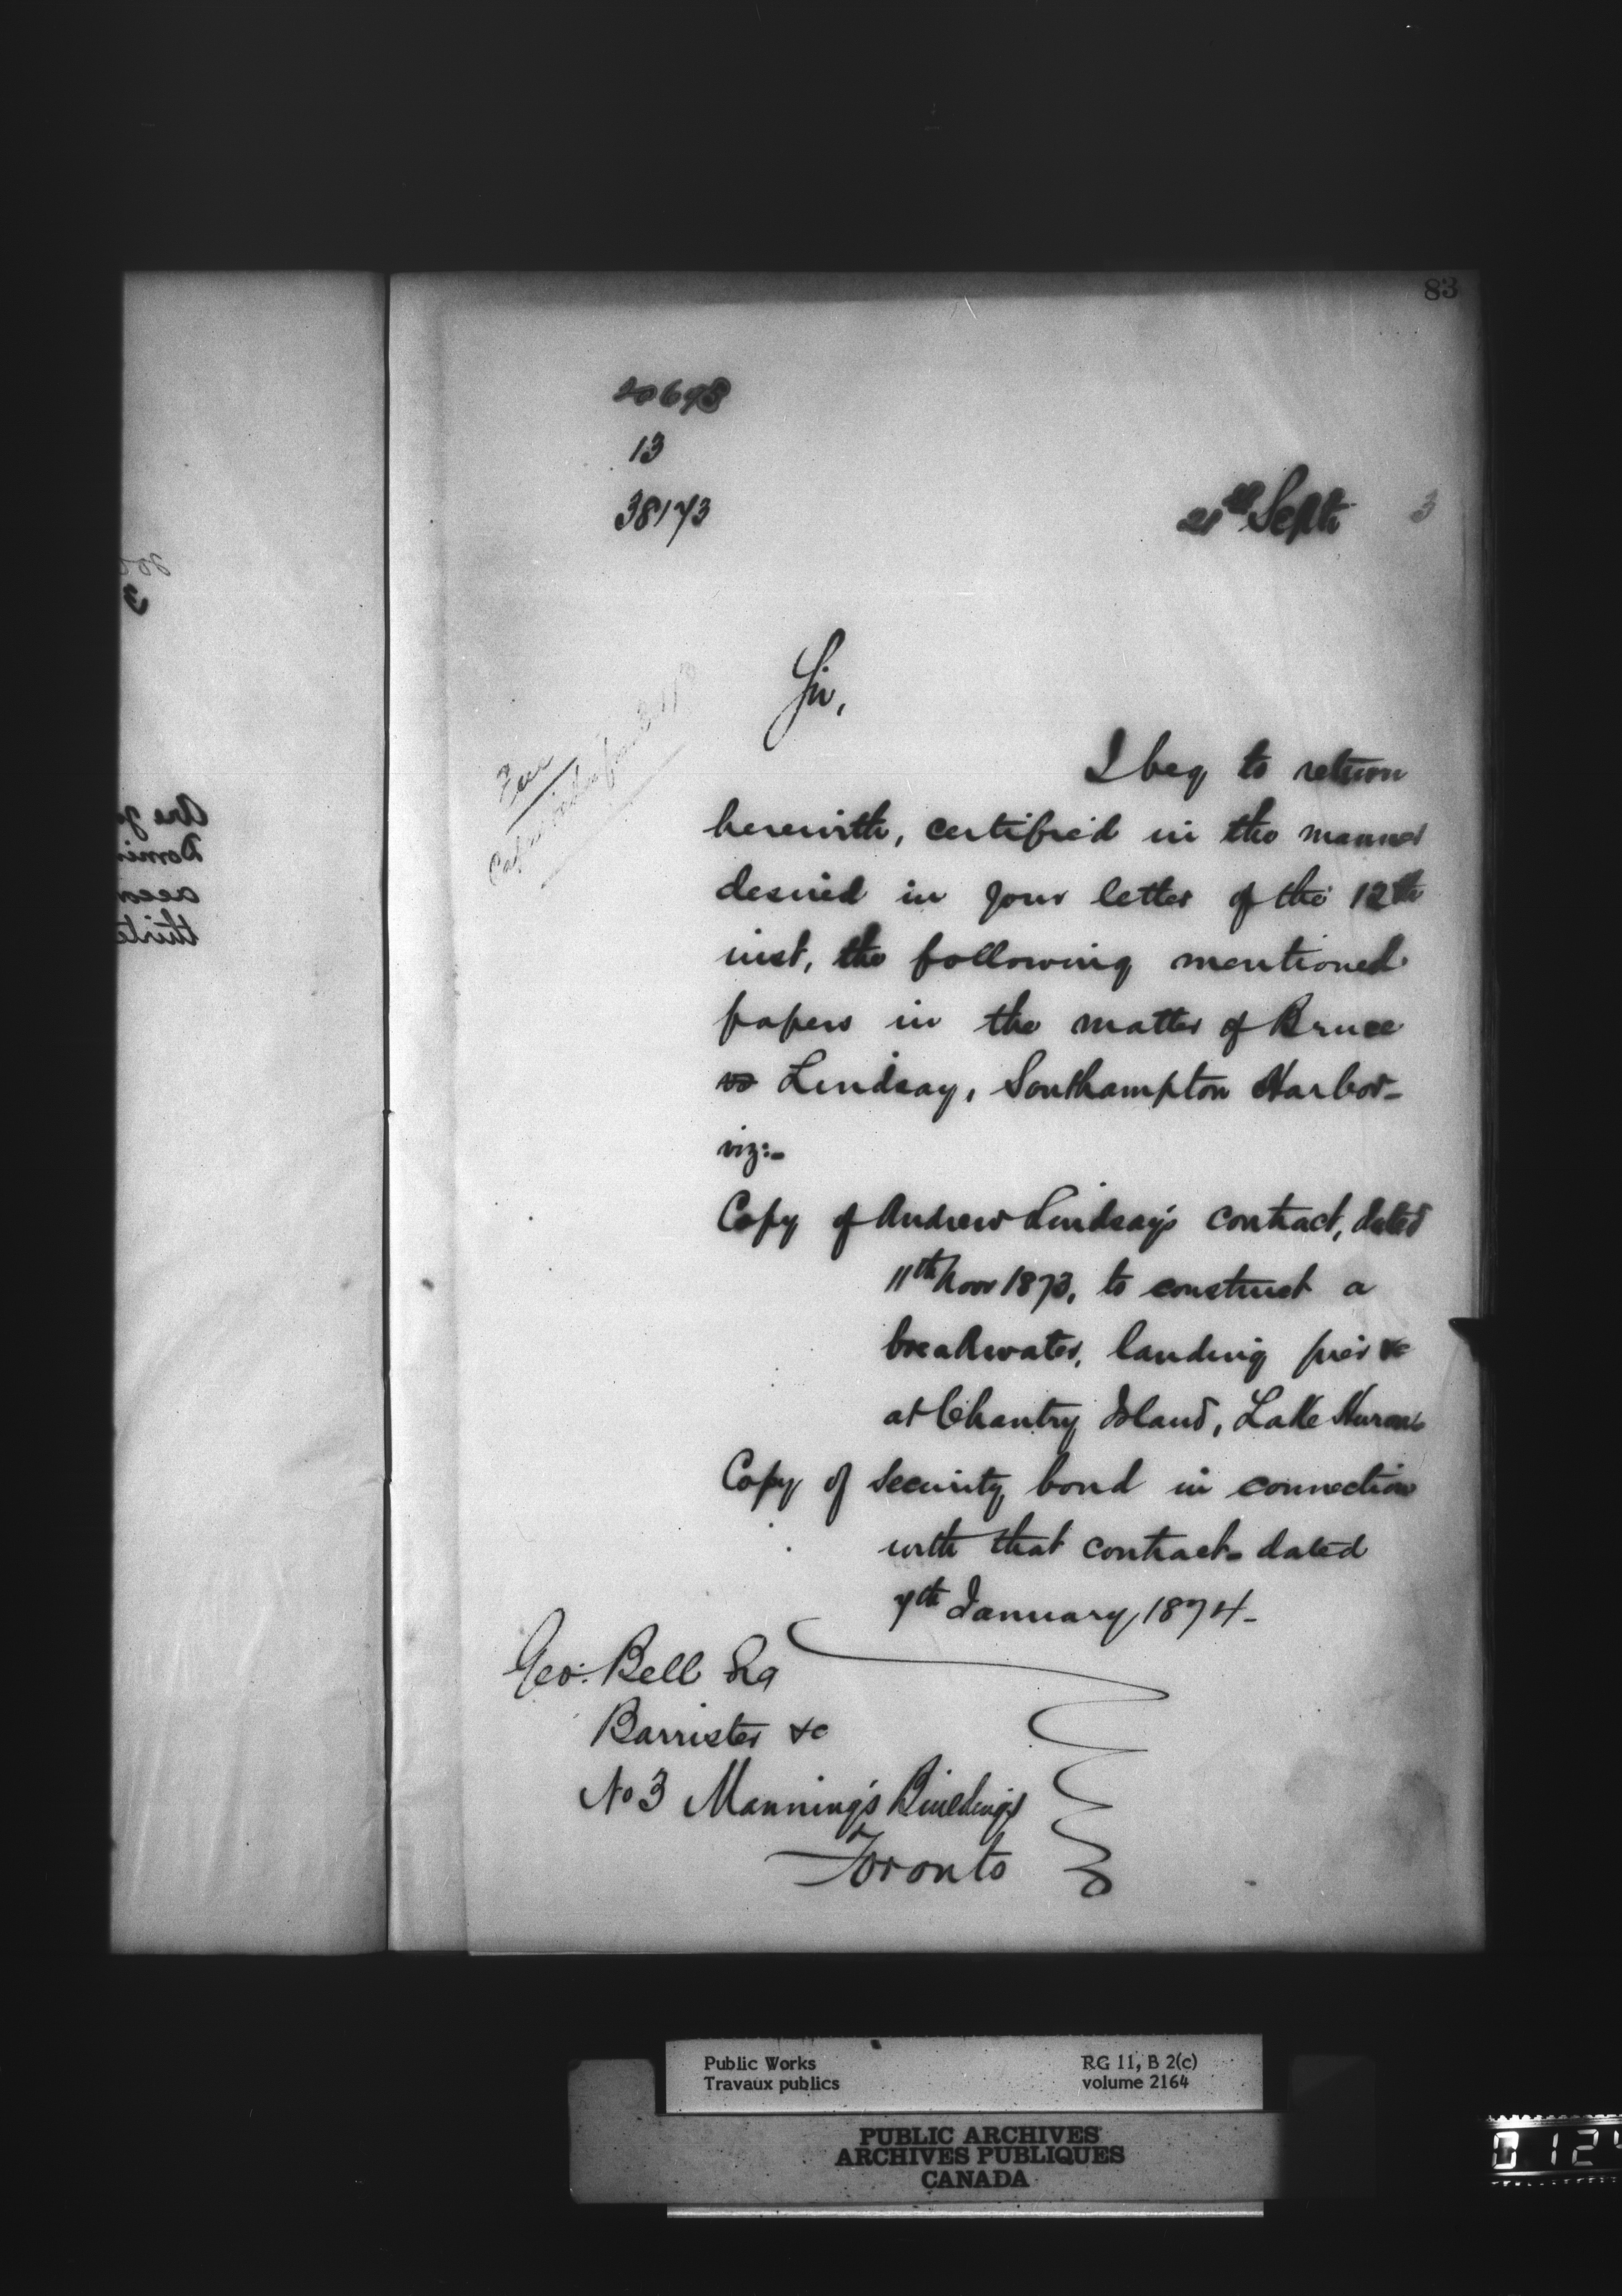 83
20698
13
38173
21st Sept. 3
Sir,
I beg to return
herewith, certified in the manner
desired in your letter of the 12th
inst, the following mentioned
papers in the matter of Bruce
vs Lindsay, Southampton Harbor-
viz:-
Copy of Andrew Lindsay's contract, dated
11th Nov 1873, to construct a
breakwater, landing pier &c
at Chantry Island, Lake Huron
Copy of security bond in connection
with that contract- dated
7th January 1874-
Geo. Bell Esq
Barrister &c
No 3 Manning's Buildings
Toronto
Public Works
Travaux publics
RG 11, B 2(c)
volume 2164
PUBLIC ARCHIVES
ARCHIVES PUBLIQUES
CANADA